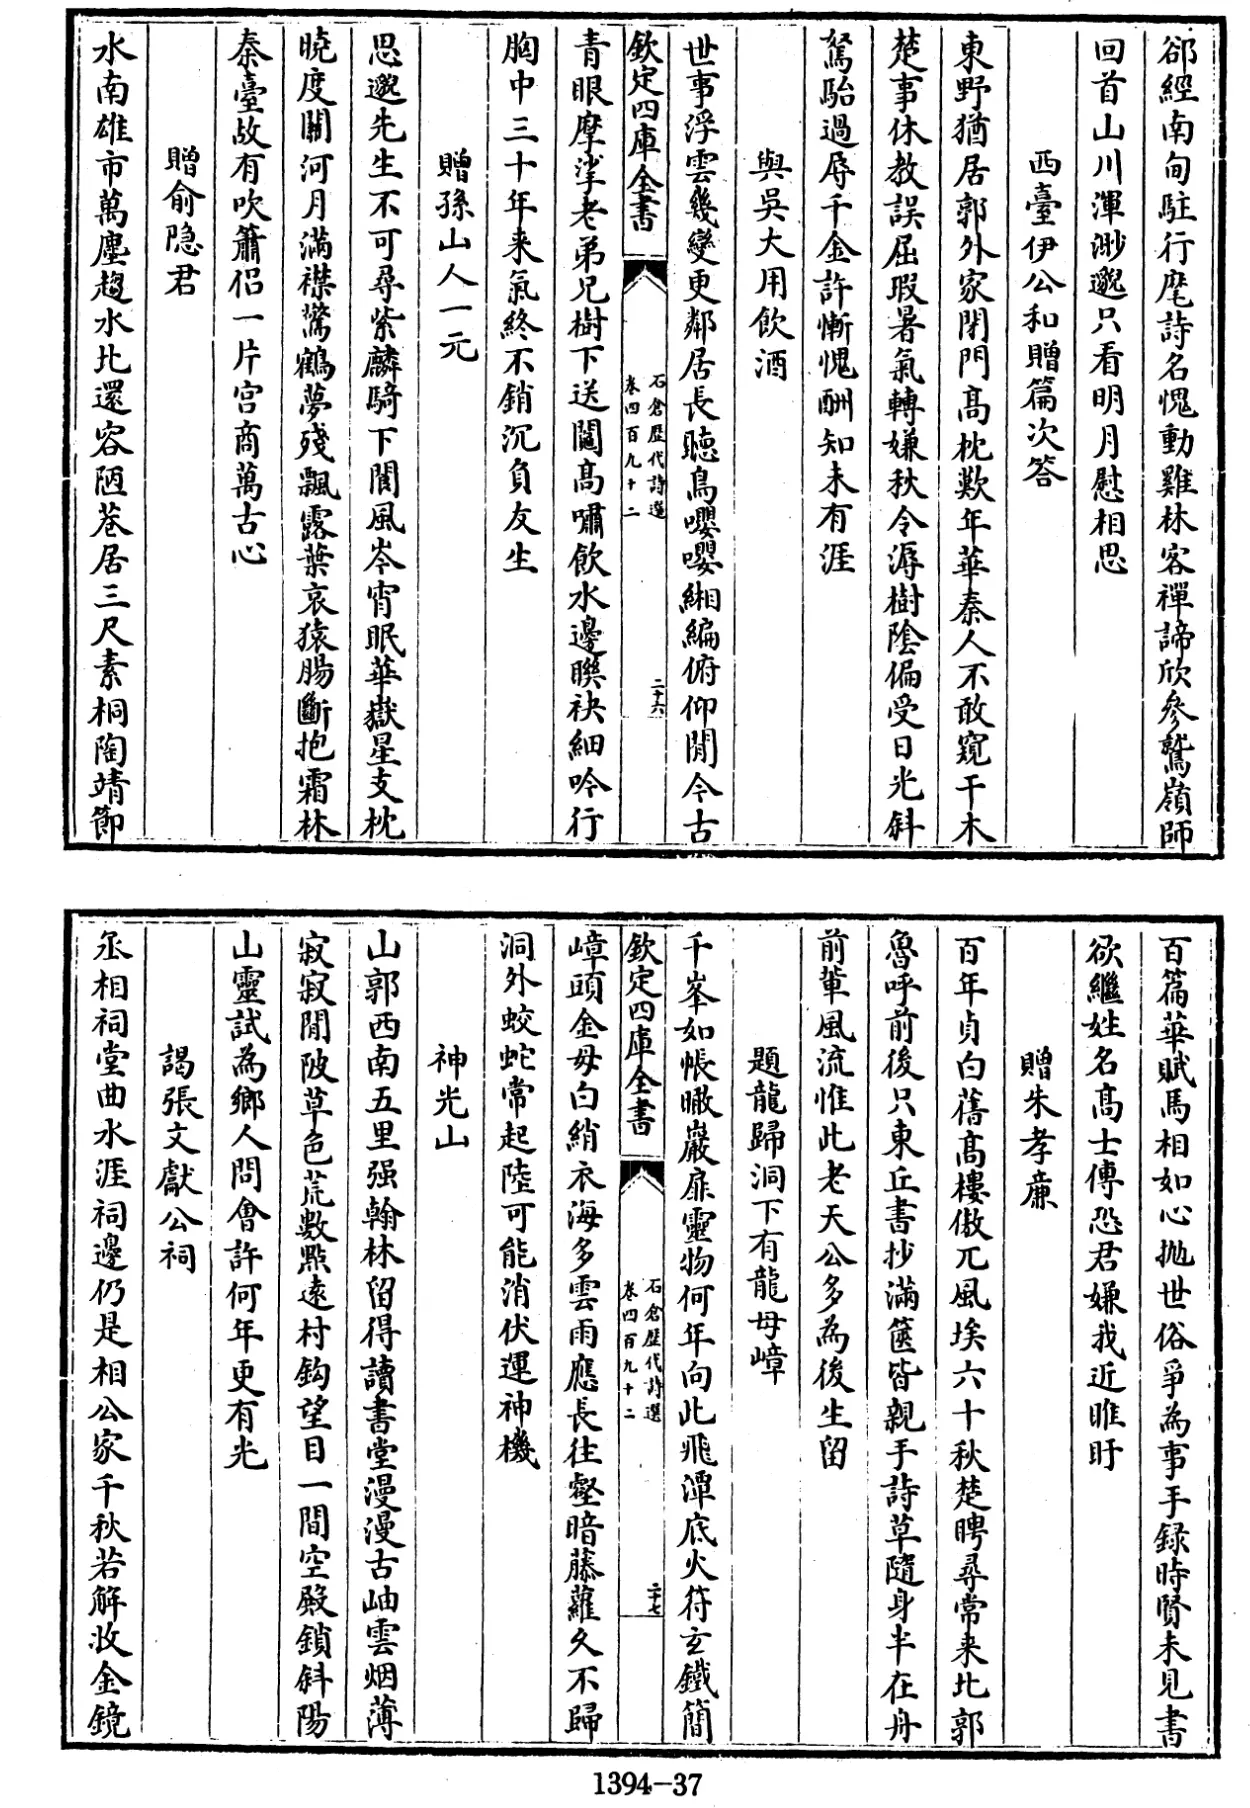 郤經南甸駐行麾詩名愧動雞林客禪諦欣參鷲嶺師
回首山川渾渺邈只看明月慰相思
西臺伊公和贈篇次答
東野猶居郭外家閉門高枕歎年華秦人不敢窺干木
楚事休教誤屈瑕暑氣轉嫌秋令溽樹陰偏受日光斜
駑駘過辱千金許慚愧酬知未有涯
與吳大用飲酒
世事浮雲幾變更鄰居長聽鳥嚶嚶緗編俯仰閒今古
欽定四庫全書
石倉歷代詩選
卷四百九十二
二十六
青眼摩挲老弟兄樹下送鬮高嘯飲水邊聯袂細吟行
胸中三十年来氣終不銷沉負友生
贈孫山人一元
思邈先生不可尋紫麟騎下閬風岑宵眠華嶽星支枕
曉度關河月滿襟驚鶴夢殘飄露葉哀猿腸斷抱霜林
秦臺故有吹簫侣一片宫商萬古心
贈俞隐君
水南雄市萬塵趨水北還容陋巷居三尺素桐陶靖節
百篇華賦馬相如心抛世俗爭為事手録時賢未見書
欲繼姓名高士傳恐君嫌我近睢盱
贈朱孝廉
百年貞白舊高樓傲兀風埃六十秋楚聘尋常来北郭
魯呼前後只東丘書抄滿篋皆親手詩草隨身半在舟
前輩風流惟此老天公多為後生留
題龍歸洞下有龍母嶂
千峯如帳瞰巖扉靈物何年向此飛潭底火符玄鐵簡
欽定四庫全書
石倉歷代詩選
卷四百九十二
二十七
嶂頭金母白綃衣海多雲雨應長往壑暗藤蘿久不歸
洞外蛟蛇常起陸可能消伏運神機
神光山
山郭西南五里强翰林留得讀書堂漫漫古岫雲烟薄
寂寂閒陂草色荒數點遠村鈎望目一間空殿鎖斜陽
山靈試為鄉人問會許何年更有光
謁張文獻公祠
丞相祠堂曲水涯祠邊仍是相公家千秋若解收金鏡
1394-37